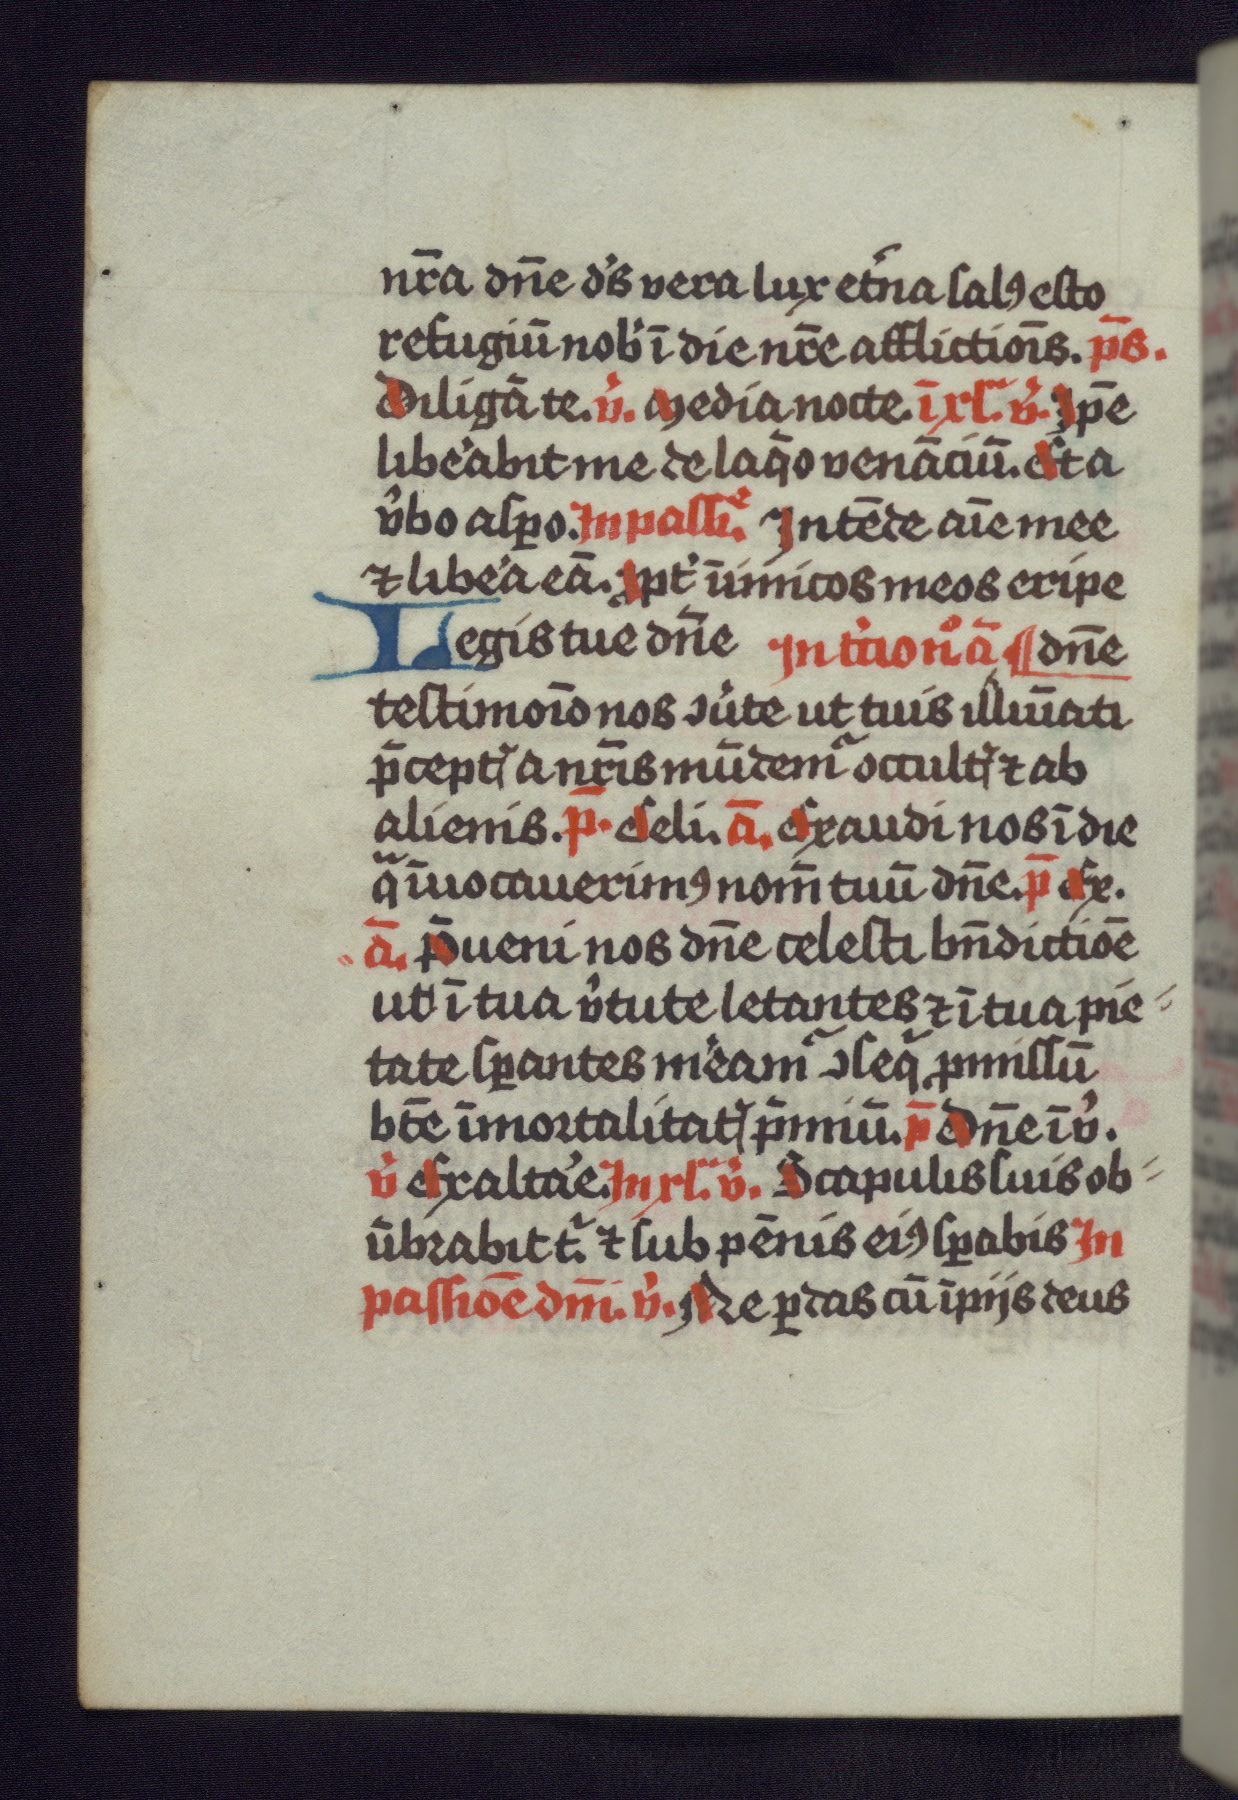 nr̄a dn̄e ds̾ vera lux et̾na salꝯ esto
refugiū nob̾ ī die nr̄e afflictiōis. p̄s.
Diligā te. v̾. Media nocte. ī xl᷑. v̾. Ip̄e
libe̾abit me de laq̄o venāciū. Et a
v̾bo asꝑo. In passi̾. Intēde aīe mee
⁊ libe̾a eā. Ꝓpt̾ īimicos meos eripe
Legis tue dn̄e In t̾cio n̾ ā ¶ dn̄e
testimoīo nos ꝯu̾te ut tuis illuīati
p̄ceptꝭ a nr̄is mūdem᷑ occultꝭ ⁊ ab
alienis. p̄. Celi. ā. Exaudi nos ī die
q᷑ īuocauerimꝯ nom̄ tuū dn̄e. p̄ Ex.
ā. P̄ueni nos dn̄e celesti bn̄dictiōe
ut ī tua v̾tute letantes ⁊ ī tua pie⸗
tate sꝑantes me̾am᷑ ꝯseq᷑ ꝓmissū
bt̄e īmortalitatꝭ p̄miū. p̄ Dn̄e ī v̾.
v̾ Exalta̾e. In xl᷑. v̾. Scapulis suis ob⸗
ūbrabit t᷑. ⁊ sub pēnis eiꝯ sꝑabis In
passiōe dn̄i. v̾. Ne ꝑdas cū īpijs deus